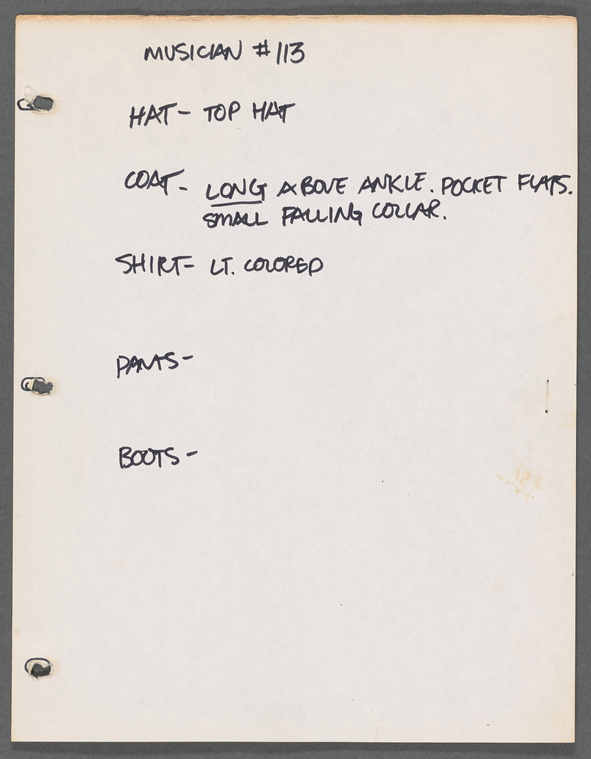 MUSICIAN #113
HAT- TOP HAT
COAT- LONG ABOVE ANKLE. POCKET FLAPS.
SMALL FALLING COLLAR.
SHIRT- LT. COLORED
PANTS-
BOOTS-